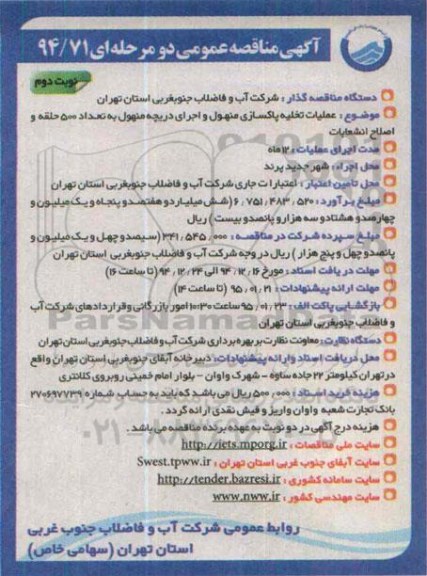 آگهی مناقصه عمومی دو مرحله‌ای ۹۴/۷۱
نوبت دوم
دستگاه مناقصه گذار : شرکت آب و فاضلاب جنوبغربی استان تهران
موضوع : عملیات تخلیه پاکسازی منهول و اجرای دریچه منهول به تعداد ۵۰۰ حلقه و
اصلاح انشعابات
مدت اجرای عملیات : ۱۲ ماه
محل اجرا : شهر جدید پرند
محل تامین اعتبار : اعتبارات جاری شرکت آب و فاضلاب جنوبغربی استان تهران
مبلغ برآورد : ۶,۷۵۱,۴۸۳,۵۲۰ (شش میلیارد و هفتصد و پنجاه و یک میلیون و
چهارصد و هشتاد و سه هزار و پانصد و بیست) ریال
مبلغ سپرده شرکت در مناقصه : ۳۴۱,۵۴۵,۰۰۰ (سیصد و چهل و یک میلیون و
پانصد و چهل و پنج هزار) ریال در وجه شرکت آب و فاضلاب جنوبغربی استان تهران
مهلت دریافت اسناد : مورخ ۹۴,۱۲,۱۶ الی ۹۴,۱۲,۲۴ (تا ساعت ۱۶)
مهلت ارائه پیشنهادات : ۹۵,۰۱,۲۱ (تا ساعت ۱۴)
بازگشایی پاکت الف : ۹۵,۰۱,۲۳ ساعت ۱۰:۳۰ امور بازرگانی و قراردادهای شرکت آب
و فاضلاب جنوبغربی استان تهران
دستگاه نظارت : معاونت نظارت بر بهره برداری شرکت آب و فاضلاب جنوبغربی استان تهران
محل دریافت اسناد و ارائه پیشنهادات : دبیرخانه آبفای جنوبغربی استان تهران واقع
در تهران کیلومتر ۲۲ جاده ساوه - شهرک واوان - بلوار امام خمینی روبروی کلانتری
هزینه خرید اسناد : ۵۰۰,۰۰۰ ریال می باشد که باید به حساب شماره ۲۷۰۶۹۷۷۳۹
بانک تجارت شعبه واوان واریز و فیش نقدی ارائه گردد .
هزینه درج آگهی در دو نوبت به عهده برنده مناقصه می باشد .
سایت ملی مناقصات : http://iets.mporg.ir
سایت آبفای جنوب غربی استان تهران : Swest.tpww.ir
سایت سامانه کشوری : http://tender.bazresi.ir
سایت مهندسی کشور : www.nww.ir
روابط عمومی شرکت آب و فاضلاب جنوب غربی
استان تهران (سهامی خاص)